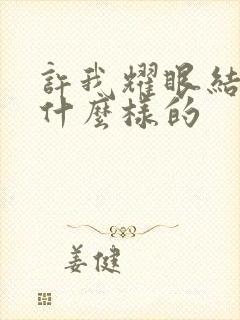 許我耀眼結
什麼樣的
姜健